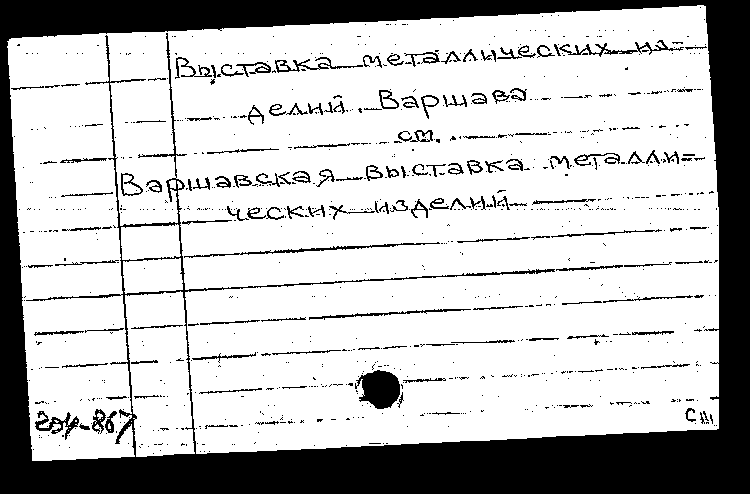 Выставка металлических из=
делий. Варшава
см.
Варшавская выставка металли=
ческих изделий
204-867